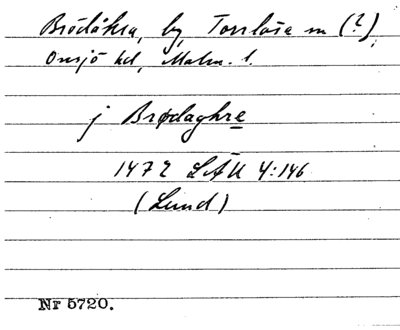 Brödåkra, by, Torrlösa sn (?),
Onsjö hd, Malm. l.
j Brødaghre
1472 LÄU 4:146
(Lund)
Nr 5720.